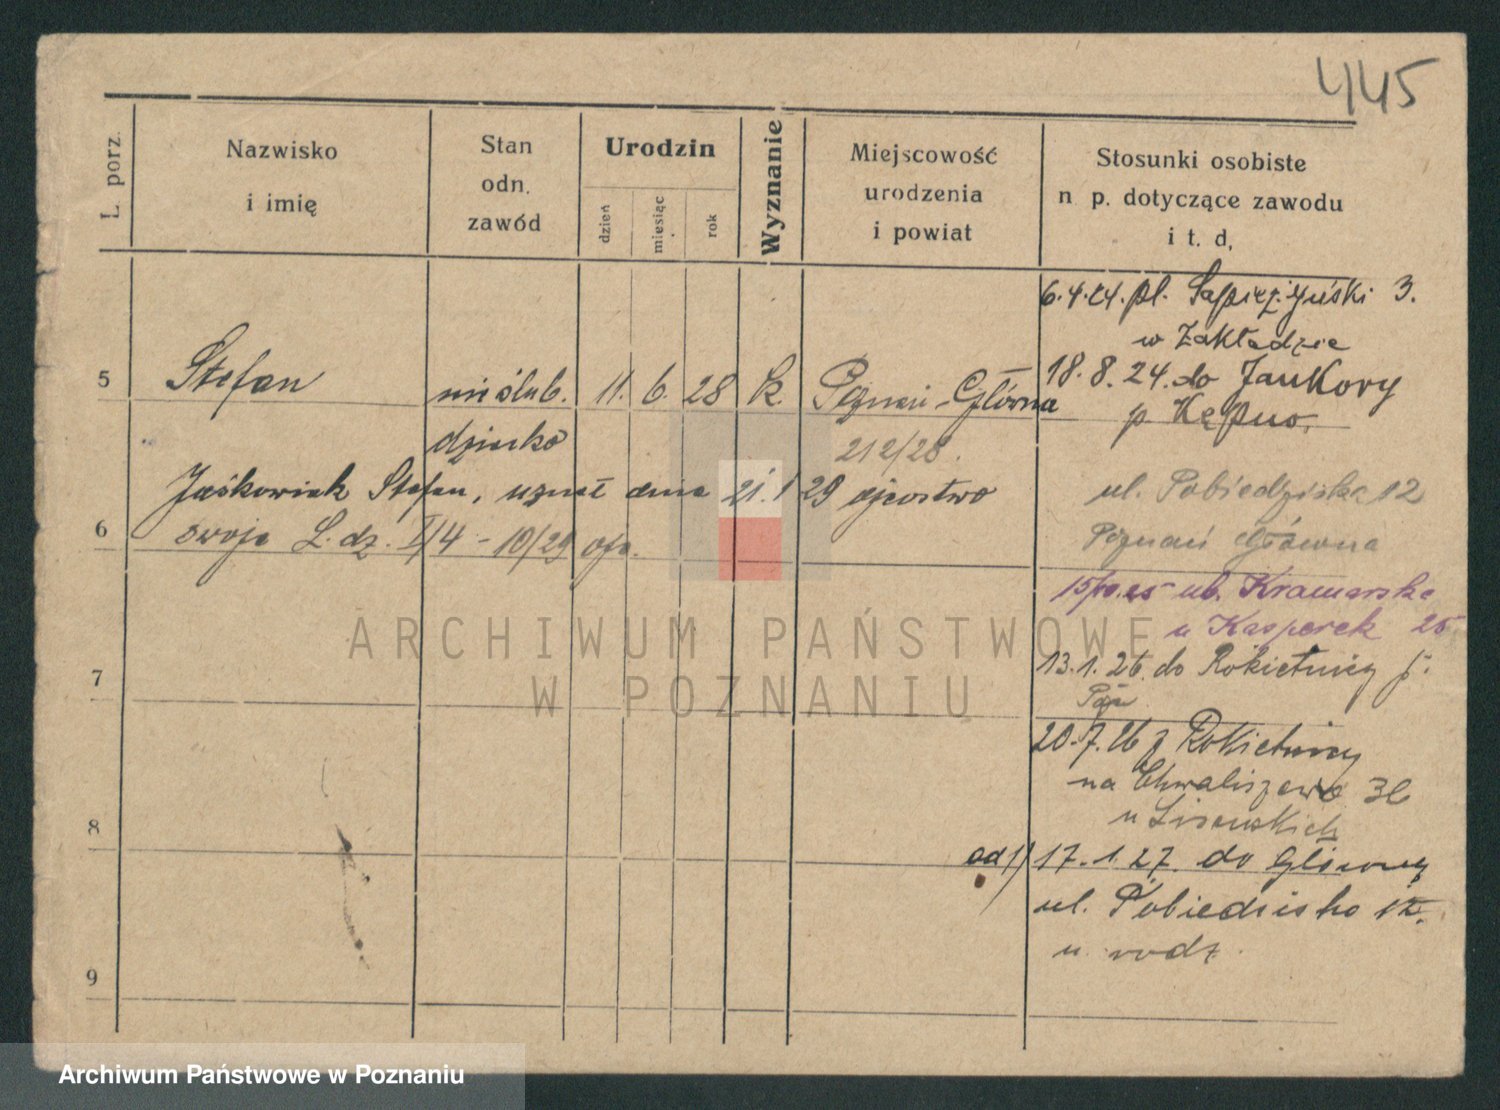 445
L. porz.
Nazwisko
i imię
Stan
odn.
zawód
Urodzin
dzień
miesiąc
rok
Wyznanie
Miejscowość
urodzenia
i powiat
Stosunki osobiste
n p. dotyczące zawodu
i t. d.
6.4.24. pl. Sapieżyński 3.
w Zakładzie
5 Stefan nieślub. 11. 6. 28 k. Poznań-Główna
dziecko
212/28.
18.8.24. do Jankovy
p Kępno.
Jaśkowiak Stefan, uznał dnia 21.1 29 ojcostwo
6 swoje L. dz. 14 - 10/29
ul. Pobiedziska 12
Poznań Główna
ul. Kramarska
u Kasperek 25
7
13.1.26. do Rokietnicy
20.7.26 z Rokietnicy
na Chwaliszewo
u
8
od 17.1.27. do Główny
ul. Pobiedzisko 12.
u rodz.
9
ARCHIWUM PAŃSTWOWE
W POZNANIU
Archiwum Państwowe w Poznaniu